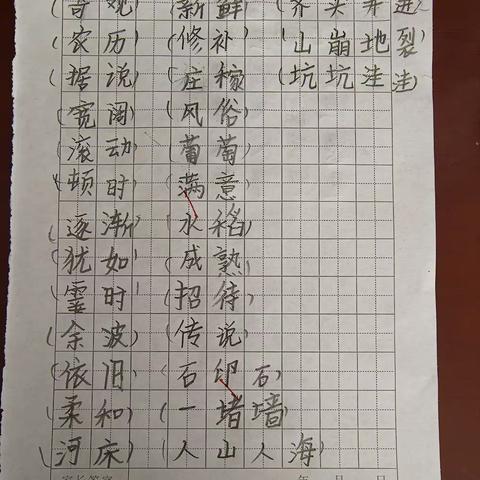 (奇观) (新鲜) (齐头并进)
(农历) (修补) (山崩地裂)
(据说) (庄稼) (坑坑洼洼)
(宽阔) (风俗)
(滚动) (葡萄)
(顿时) (满意)
(逐渐) (水稻)
(犹如) (成熟)
(霎时) (招待)
(余波) (传说)
(依旧) (石卵石)
(柔和) (一堵墙)
(河床) (人山人海)